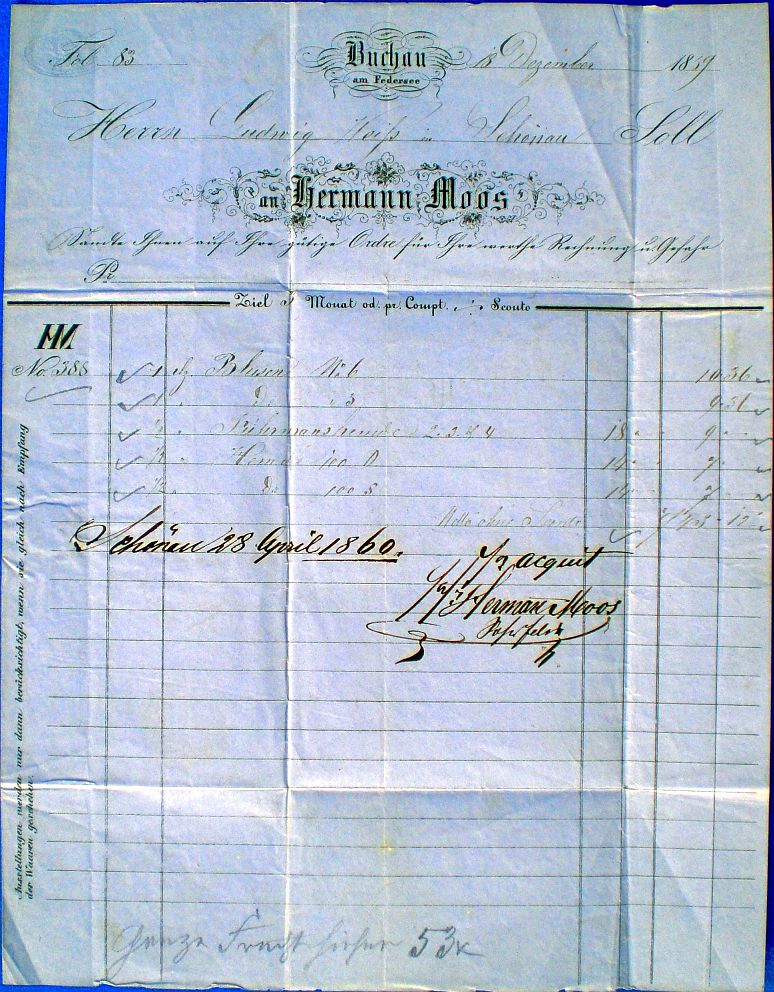 Fol. 83
Buchau
am Federsee
18 Dezember 1859
Herrn Ludwig in Schönau Soll
an Hermann Moos
Sandte Ihnen auf Ihre gütige Ordre für Ihre werthe Rechnung u. Gefahr
Pr.
Ziel Monat od. pr. Compt. Sconto
HM
No. 388 1 Blusen No 6 10 36
1 " Do " 3 9 31
½ " 2. 3. 4 18 " 9 "
½ " Hemde 100 14 " 7 "
½ " Do 100 14 " 7 "
Netto ohne Sconto
Schönau 28 April 1860.
acquit
Herman Moos
Ganze Fracht hieher 53x
Ausstellungen werden nur dann berücksichtigt, wenn sie gleich nach Empfang
der Waaren geschehen.